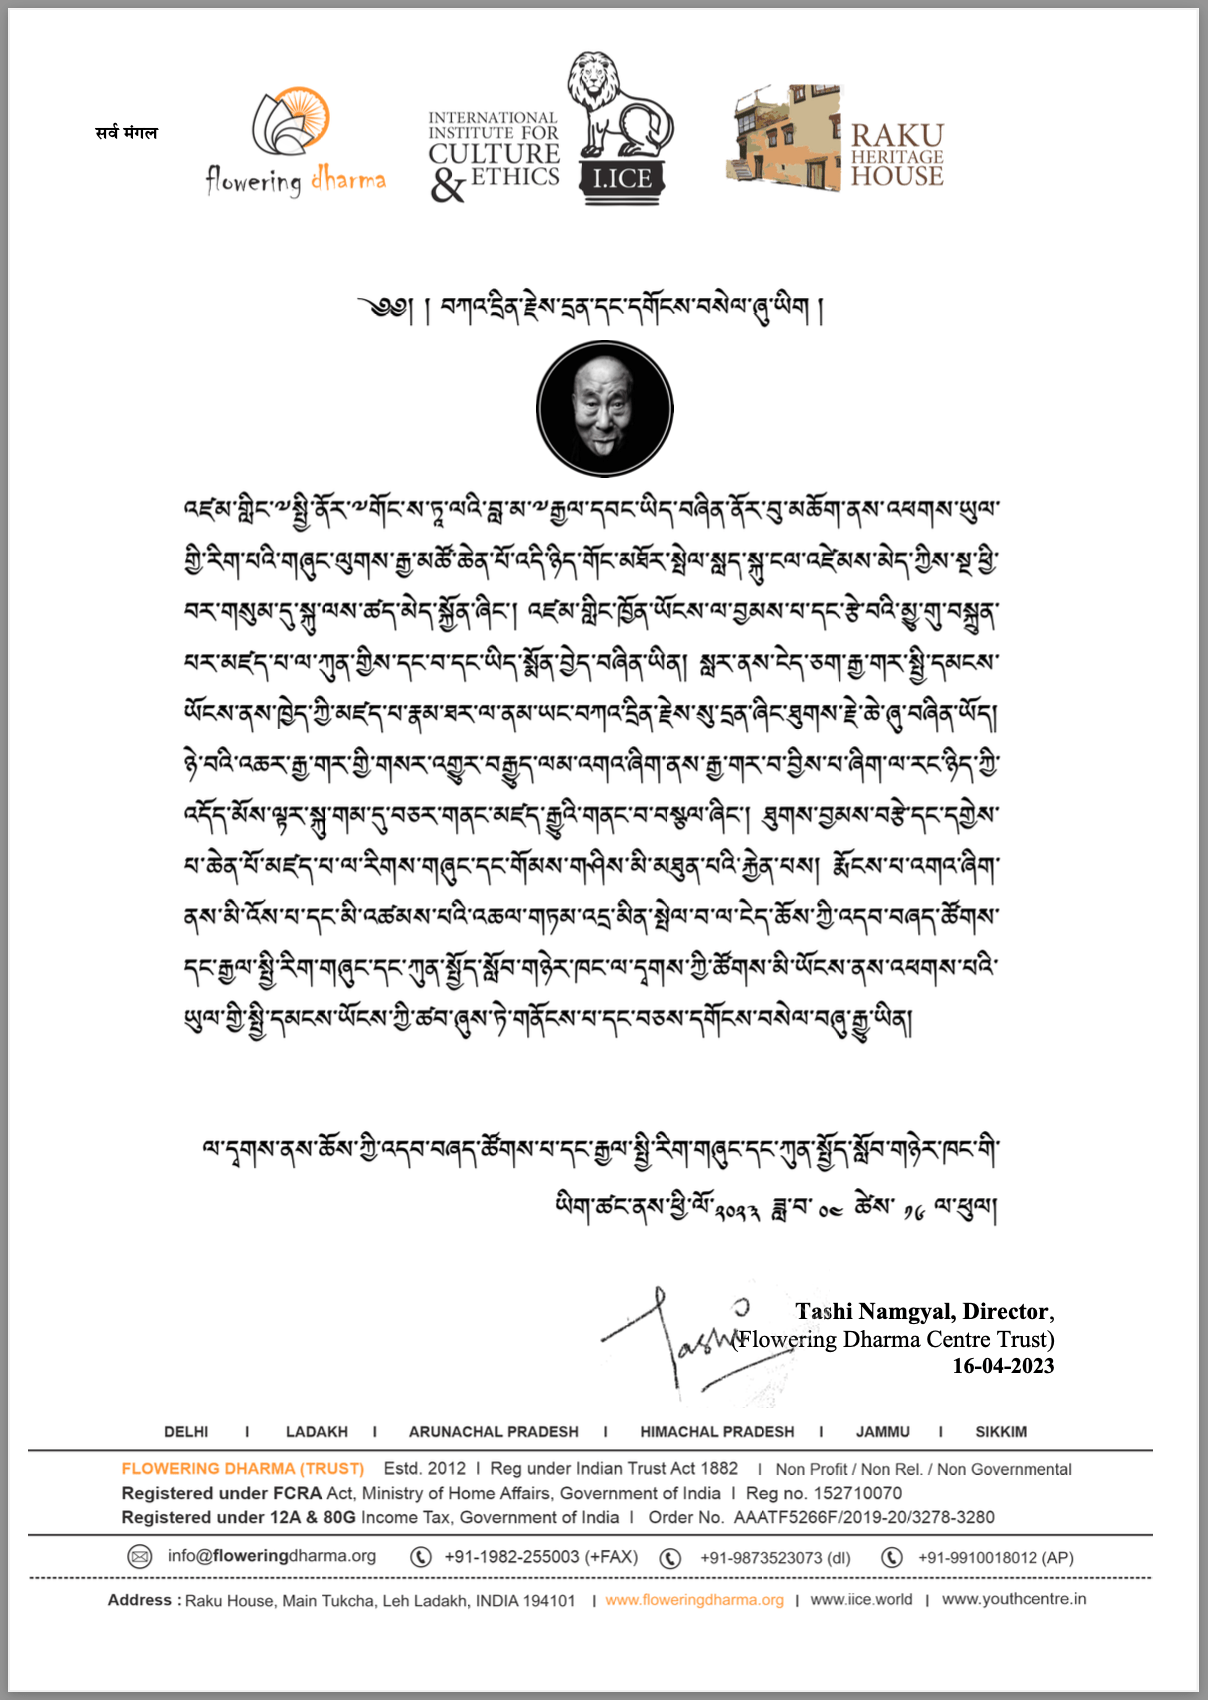 सर्व मंगल
flowering dharma
INTERNATIONAL
INSTITUTE FOR
CULTURE
& ETHICS
I.ICE
RAKU
HERITAGE
HOUSE
༄༅། །བཀའ་དྲིན་རྗེས་དྲན་དང་དགོངས་བསེལ་ཞུ་ཡིག །
འཛམ་གླིང་༧སྤྱི་ནོར་༧གོང་ས་ཏཱ་ལའི་བླ་མ་༧རྒྱལ་དབང་ཡིད་བཞིན་ནོར་བུ་མཆོག་ནས་འཕགས་ཡུལ་
གྱི་རིག་པའི་གཞུང་ལུགས་རྒྱ་མཚོ་ཆེན་པོ་འདི་ཉིད་གོང་མཐོར་སྤེལ་སླད་སྐུ་ངལ་འཛེམས་མེད་ཀྱིས་སྔ་ཕྱི་
བར་གསུམ་དུ་སྐུ་ལས་ཚད་མེད་སྐྱོན་ཞིང་། འཛམ་གླིང་ཁྱོན་ཡོངས་ལ་བྱམས་པ་དང་རྩེ་བའི་མྱུ་གུ་བསྐྲུན་
པར་མཛད་པ་ལ་ཀུན་གྱིས་དང་བ་དང་ཡིད་སྨོན་བྱེད་བཞིན་ཡིན། སླར་ནས་ངེད་ཅག་རྒྱ་གར་སྤྱི་དམངས་
ཡོངས་ནས་ཁྱེད་ཀྱི་མཛད་པ་རྣམ་ཐར་ལ་ནམ་ཡང་བཀའ་དྲིན་རྗེས་སུ་དྲན་ཞིང་ཐུགས་རྗེ་ཆེ་ཞུ་བཞིན་ཡོད།
ཉེ་བའི་འཆར་རྒྱ་གར་གྱི་གསར་འགྱུར་བརྒྱུད་ལམ་འགའ་ཞིག་ནས་རྒྱ་གར་བ་བྱིས་པ་ཞིག་ལ་རང་ཉིད་ཀྱི་
འདོད་མོས་ལྟར་སྐུ་གམ་དུ་བཅར་གནང་མཛད་རྒྱུའི་གནང་བ་བསྩལ་ཞིང་། ཐུགས་བྱམས་བརྩེ་དང་དགྱེས་
པ་ཆེན་པོ་མཛད་པ་ལ་རིགས་གཞུང་དང་གོམས་གཤིས་མི་མཐུན་པའི་རྐྱེན་པས། རྨོངས་པ་འགའ་ཞིག་
ནས་མི་འོས་པ་དང་མི་འཚམས་པའི་འཆལ་གཏམ་འདྲ་མིན་སྤེལ་བ་ལ་ངེད་ཆོས་ཀྱི་འདབ་བཞད་ཚོགས་
དང་རྒྱལ་སྤྱི་རིག་གཞུང་དང་ཀུན་སྤྱོད་སློབ་གཉེར་ཁང་ལ་དྭགས་ཀྱི་ཚོགས་མི་ཡོངས་ནས་འཕགས་པའི་
ཡུལ་གྱི་སྤྱི་དམངས་ཡོངས་ཀྱི་ཚབ་ཞུས་ཏེ་གནོངས་པ་དང་བཅས་དགོངས་བསེལ་བཞུ་རྒྱུ་ཡིན།
ལ་དྭགས་ནས་ཆོས་ཀྱི་འདབ་བཞད་ཚོགས་པ་དང་རྒྱལ་སྤྱི་རིག་གཞུང་དང་ཀུན་སྤྱོད་སློབ་གཉེར་ཁང་གི་
ཡིག་ཚང་ནས་ཕྱི་ལོ་༢༠༢༣ ཟླ་བ་ ༠༤ ཚེས་ ༡༦ ལ་ཕུལ།
Tashi
Tashi Namgyal, Director,
(Flowering Dharma Centre Trust)
16-04-2023
DELHI I LADAKH I ARUNACHAL PRADESH I HIMACHAL PRADESH I JAMMU I SIKKIM
FLOWERING DHARMA (TRUST) Estd. 2012 I Reg under Indian Trust Act 1882 I Non Profit / Non Rel. / Non Governmental
Registered under FCRA Act, Ministry of Home Affairs, Government of India I Reg no. 152710070
Registered under 12A & 80G Income Tax, Government of India I Order No. AAATF5266F/2019-20/3278-3280
info@floweringdharma.org +91-1982-255003 (+FAX) +91-9873523073 (dl) +91-9910018012 (AP)
Address : Raku House, Main Tukcha, Leh Ladakh, INDIA 194101 I www.floweringdharma.org I www.iice.world I www.youthcentre.in